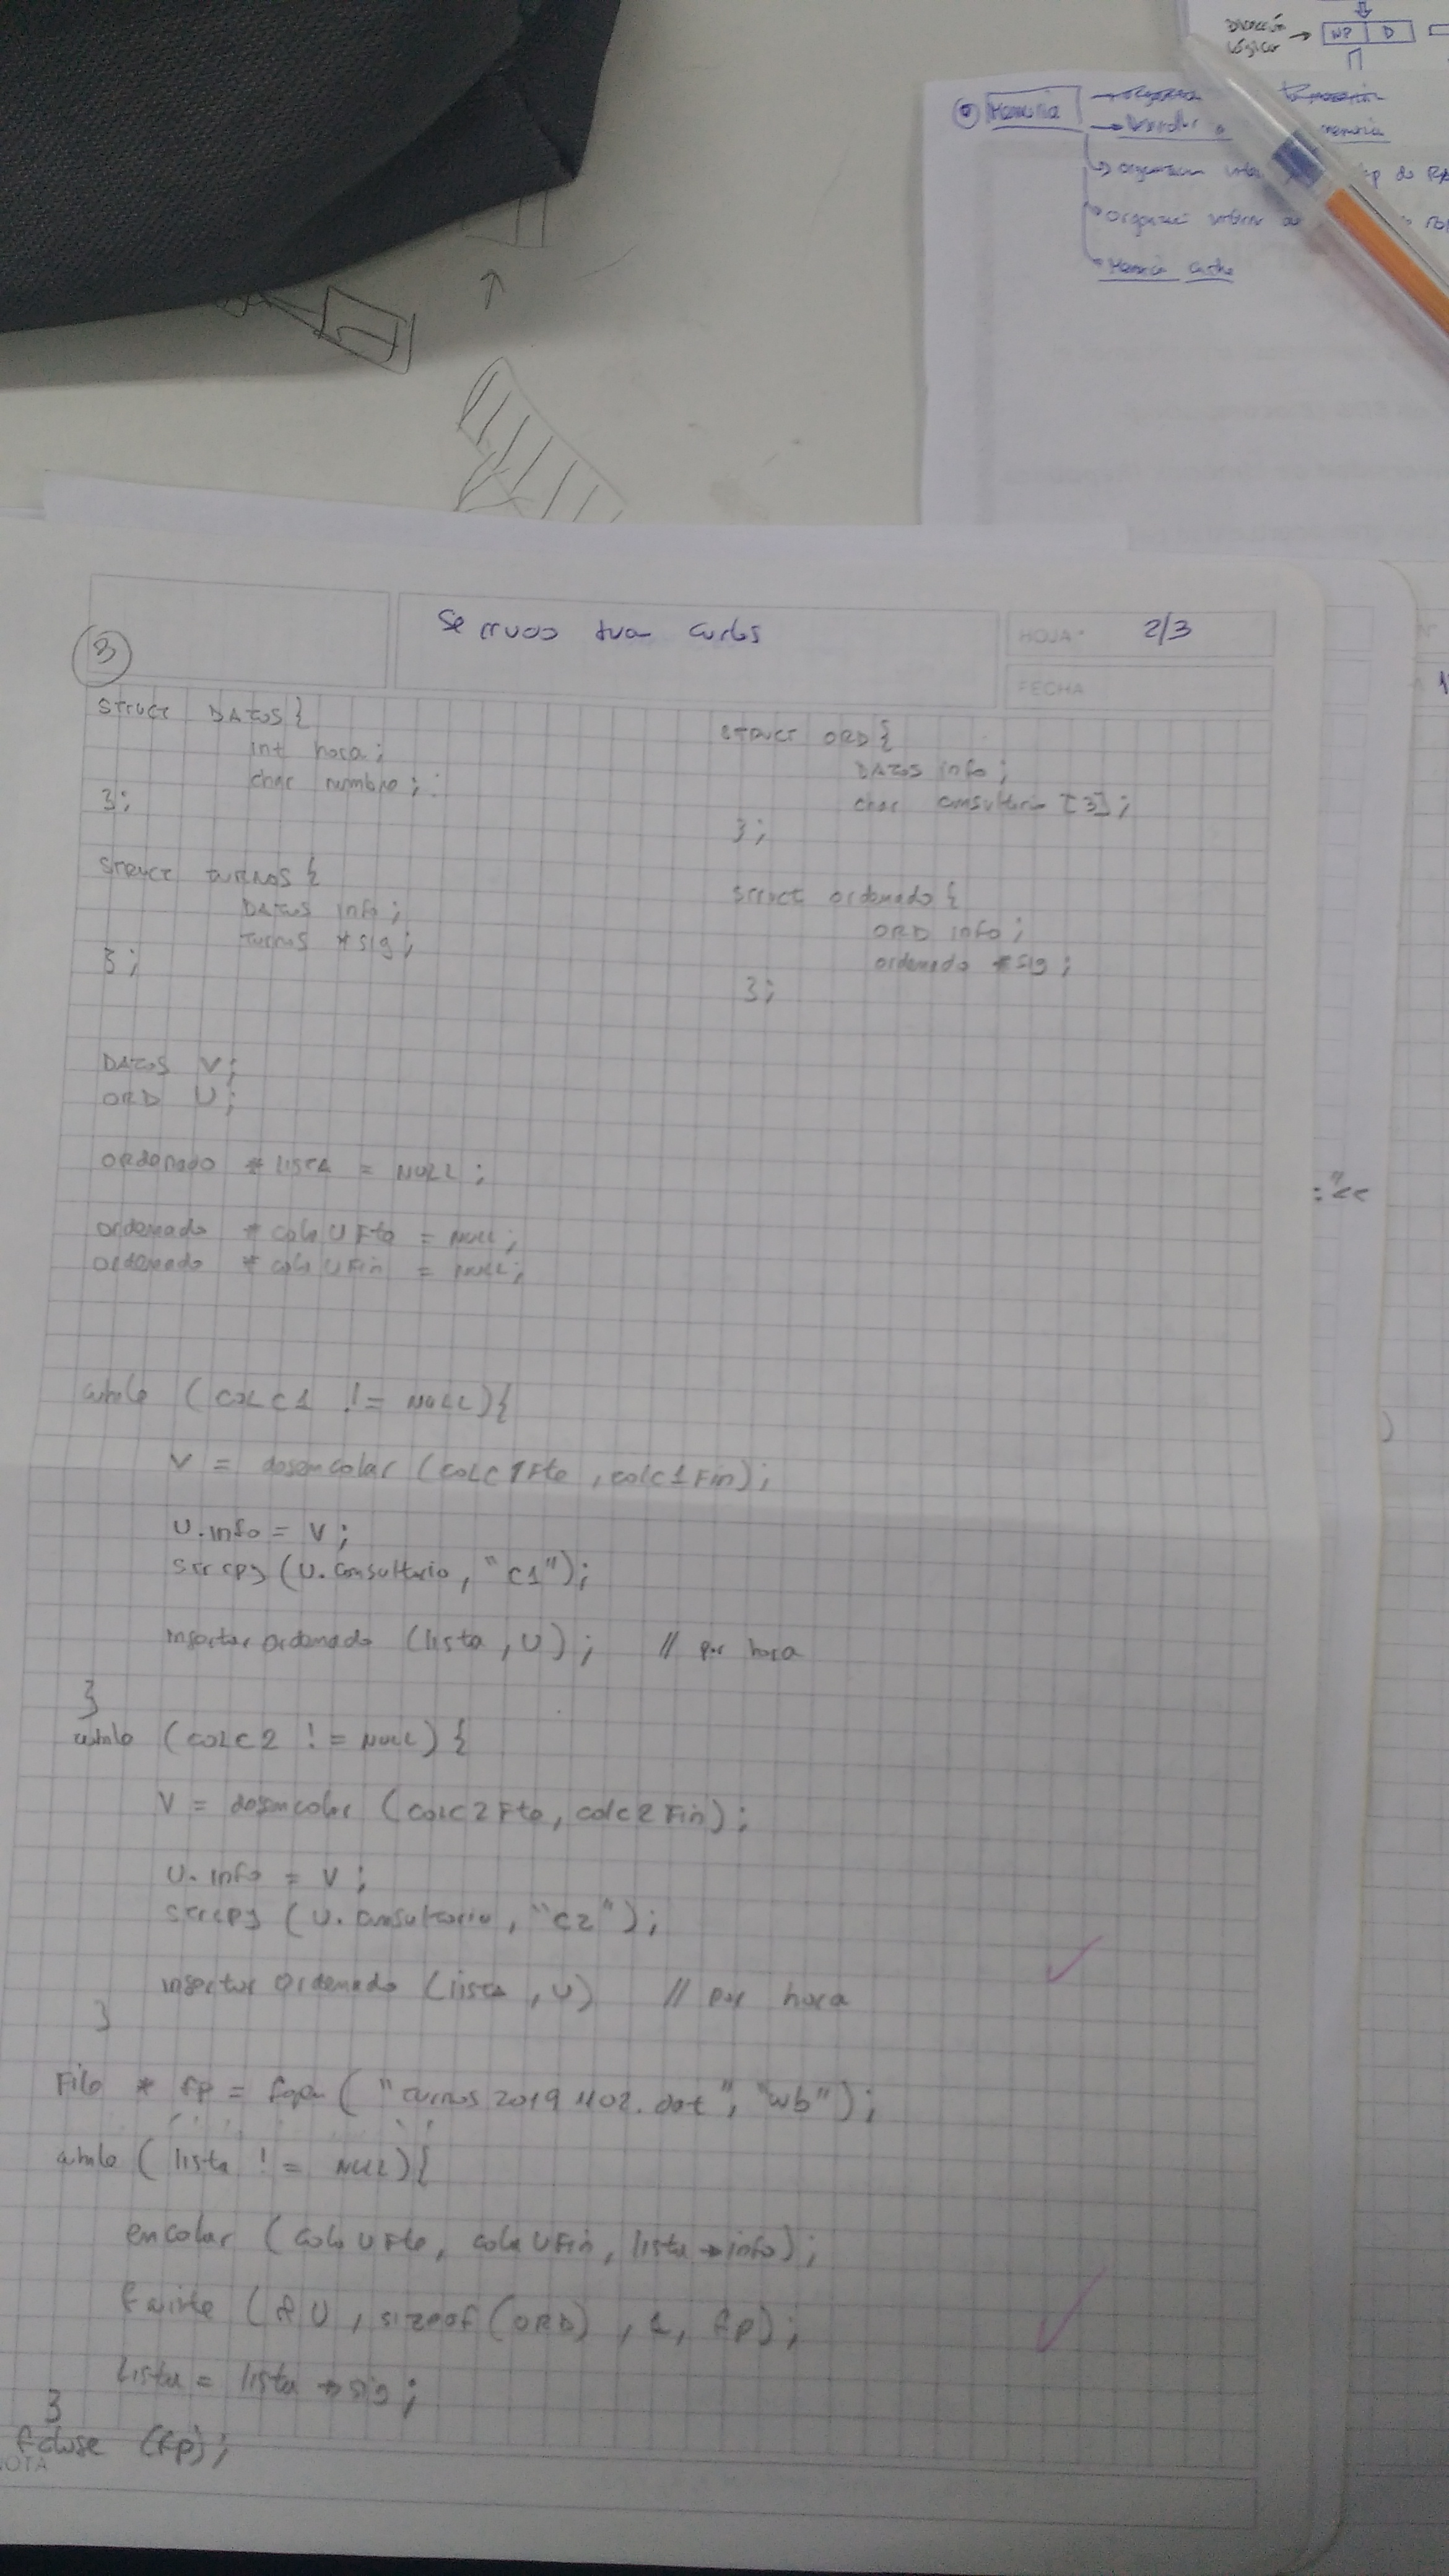 lógica → NP D
Memoria
memoria
organización
Memoria cache
HOJA: 2/3
FECHA
3
struct DATOS {
int hora;
char nombre;
};
struct ORD {
DATOS info;
char consultorio [3];
};
struct turnos {
DATOS info;
turnos *sig;
};
struct ordenado {
ORD info;
ordenado *sig;
};
DATOS V;
ORD U;
ordenado * lista = NULL;
ordenado * colaUFte = NULL;
ordenado * colaUFin = NULL;
while (colC1 != NULL){
V = desencolar (colC1Fte, colC1Fin);
U.info = V;
strcpy (U.consultorio, "C1");
insertarOrdenado (lista, U); // por hora
}
while (colC2 != NULL) {
V = desencolar (colC2Fte, colC2Fin);
U.info = V;
strcpy (U.consultorio, "C2");
insertarOrdenado (lista, U) // por hora
}
File * fp = fopen ("turnos20191102.dat", "wb");
while (lista != NULL){
encolar (colaUFte, colaUFin, lista→info);
fwrite (&U, sizeof(ORD), 1, fp);
lista = lista→sig;
}
fclose (fp);
NOTA
:"<<